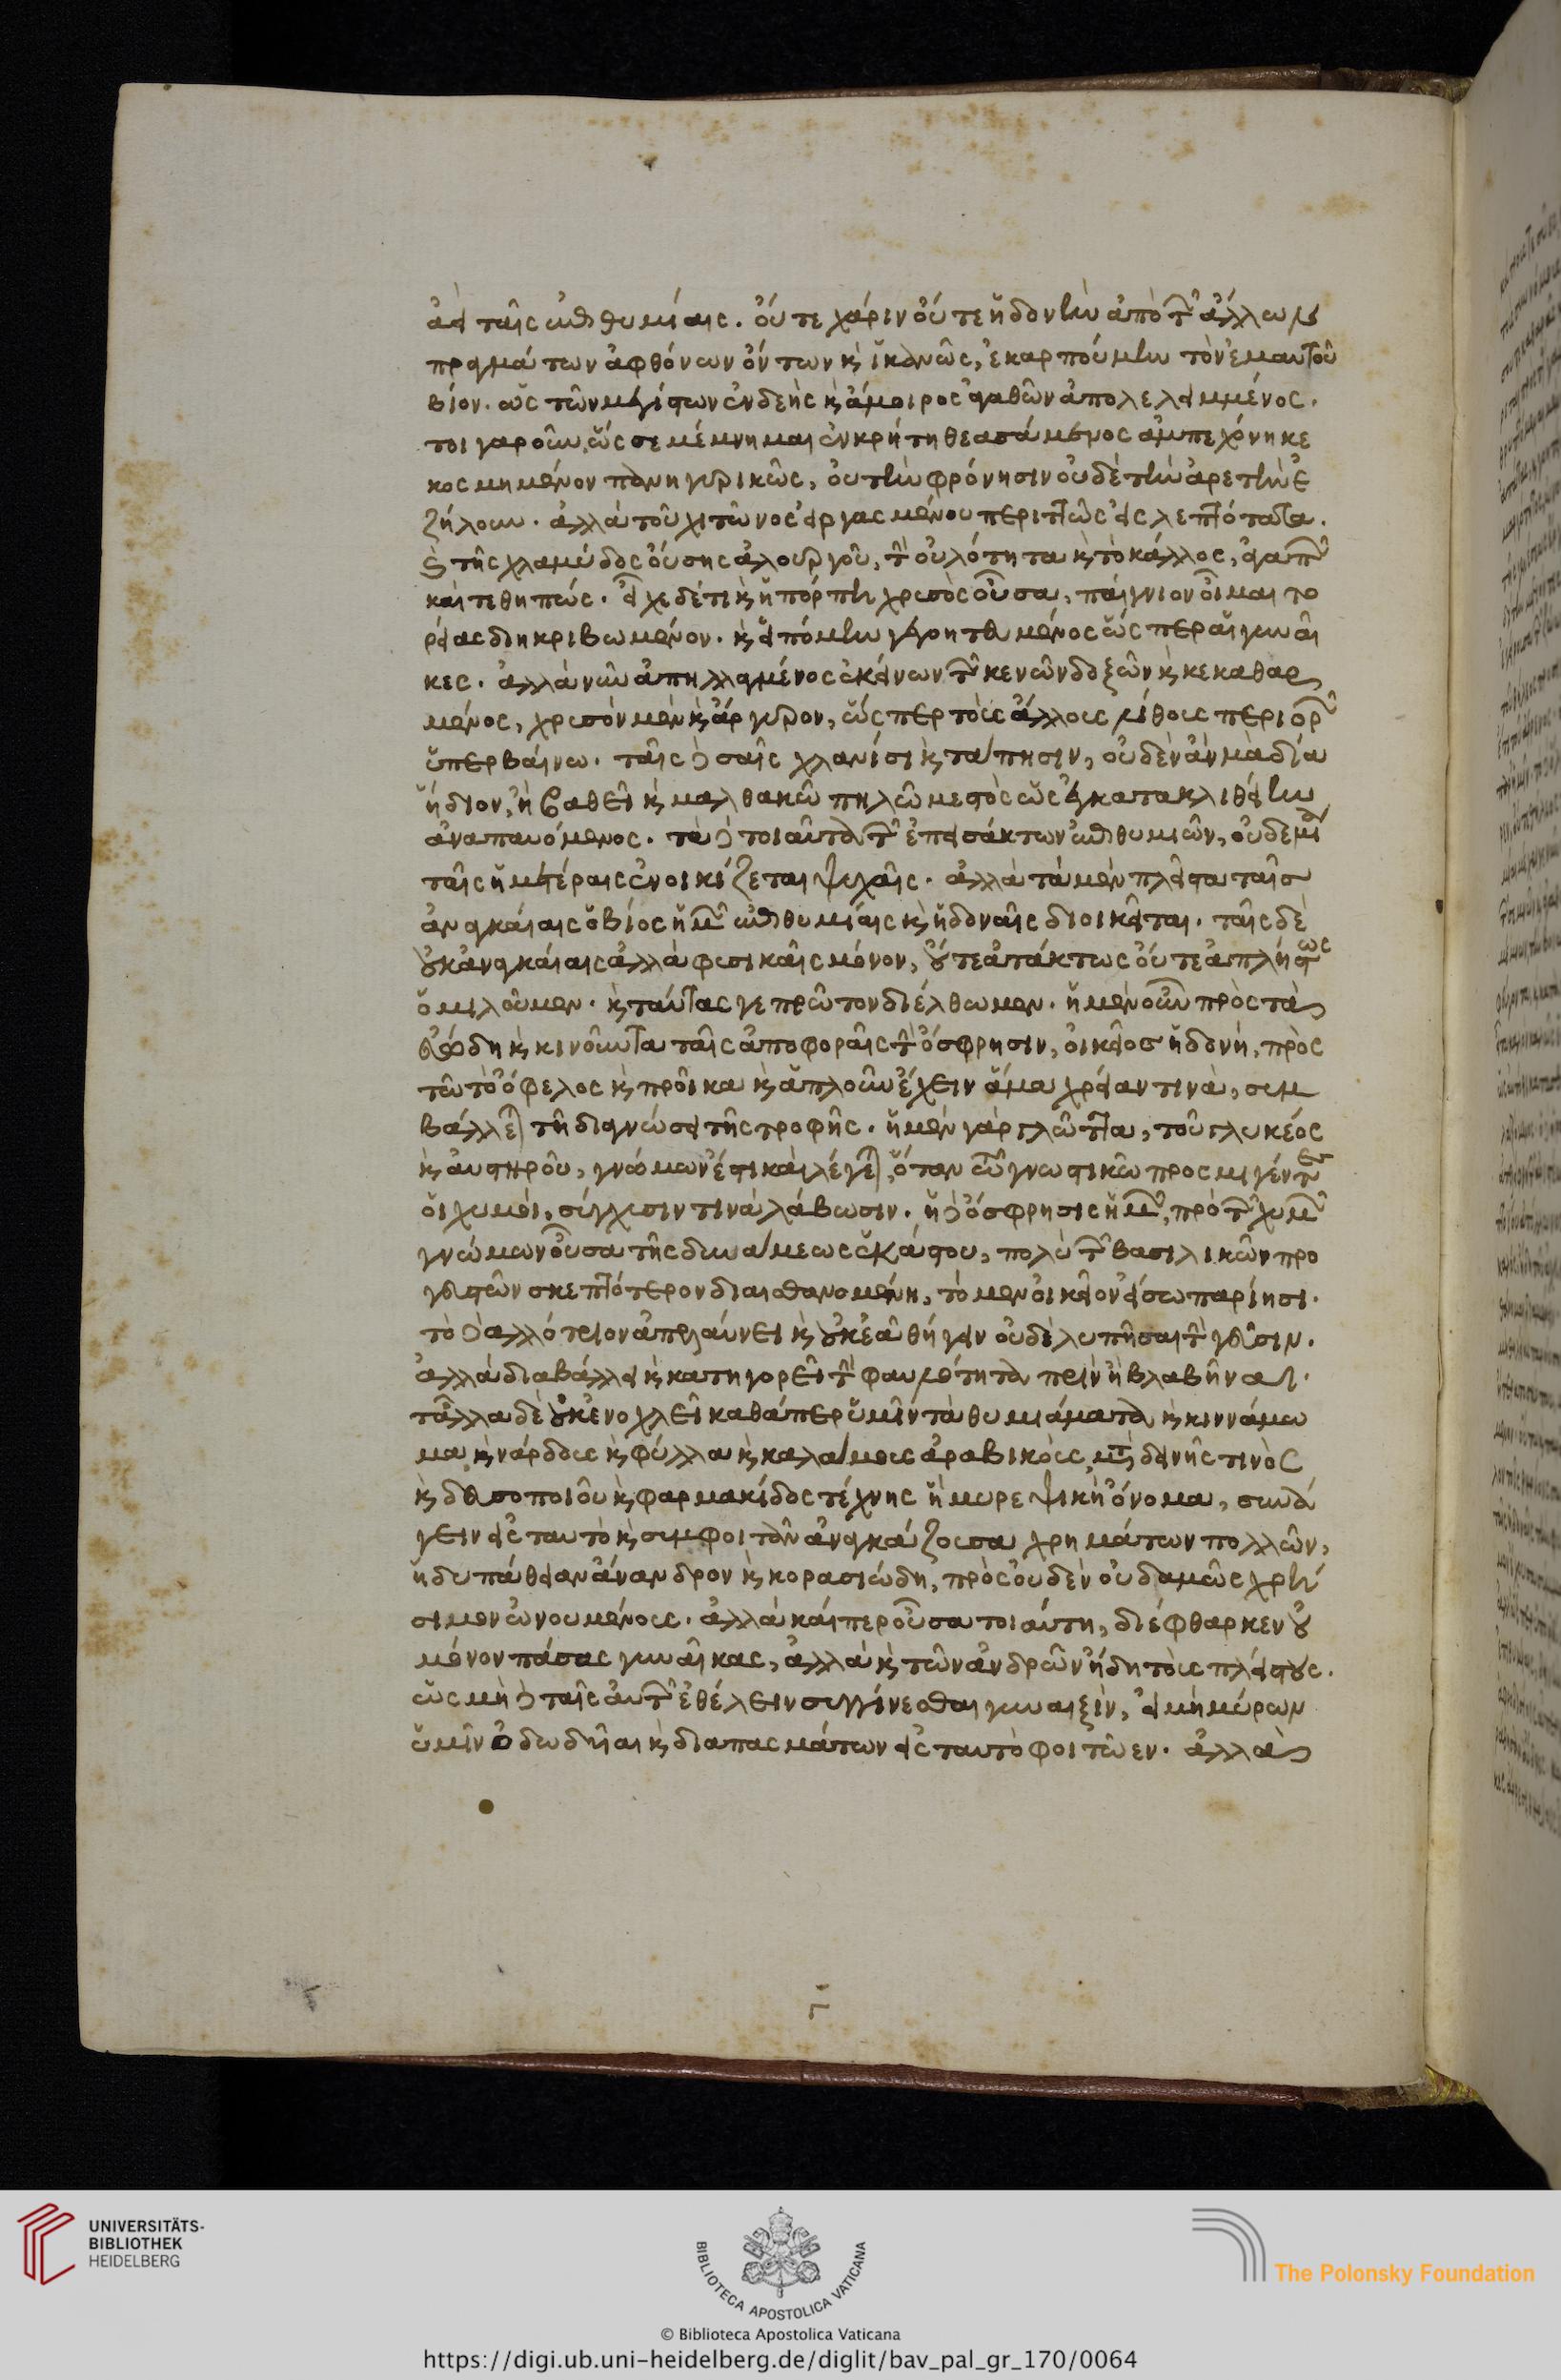 ει ταῖς ἐπιθυμίαις. οὔτε χάριν οὔτε ἡδονὴν ἀπὸ τῶν ἄλλων
πραγμάτων ἀφθόνων ὄντων κὶ ἱκανῶς, ἐκαρπούμην τὸν ἐμαυτοῦ
βίον. ὡς τῶν μεγίστων ἐνδεὴς κὶ ἄμοιρος ἀγαθῶν ἀπολελειμμένος.
τοιγαροῦν, ὥς σε μέμνημαι ἐν κρήτη θεασάμενος ἀμπεχόνη κε
κοσμημένον πανηγυρικῶς, οὐ τὴν φρόνησιν οὐδὲ τὴν ἀρετὴν ἐ
ζήλουν. ἀλλὰ τοῦ χιτῶνος εἰργασμένου περιττῶς εἰς λεπτότατα.
κὶ τῆς χλαμύδος οὔσης ἁλουργοῦ, τὴν οὐλότητα κὶ τὸ κάλλος, ἀγαπῶν
καὶ τεθηπώς. εἶχε δέ τι κὶ ἡ πόρπη χρυσὸς οὖσα, παίγνιον οἶμαι το
ρείας διηκριβωμένον. κὶ εἱπόμην γεγοητευμένος ὥσπερ αἱ γυναῖ
κες. ἀλλὰ νῦν ἀπηλλαγμένος ἐκείνων τῶν κενῶν δοξῶν κὶ κεκαθαρ
μένος, χρυσὸν μὲν κὶ ἄργυρον, ὥσπερ τοὺς ἄλλους λίθους περιορῶν
ὑπερβαίνω. ταῖς δὲ σαῖς χλανίσι κὶ τάπησιν, οὐδὲν ἂν μὰ δία
ἥδιον, ἢ βαθεῖ κὶ μαλθακῶ πηλῶ μεστὸς ὢς ἐγκατακλιθείην
ἀναπαυόμενος. τὰ δὲ τοιαῦτα τῶν ἐπεισάκτων ἐπιθυμιῶν, οὐδεμία
ταῖς ἡμετέραις ἐνοικίζεται ψυχαῖς. ἀλλὰ τὰ μὲν πλεῖστα ταῖς
ἀναγκαίαις ὁ βίος ἡμῶν ἐπιθυμίαις κὶ ἡδοναῖς διοικεῖται. ταῖς δὲ
οὐκ ἀναγκαίαις ἀλλὰ φυσικαῖς μόνον, οὔτε ἀτάκτως οὔτε ἀπλήστως
ὁμιλοῦμεν. κὶ ταύτας γε πρῶτον διέλθωμεν. ἡ μὲν οὖν πρὸς τὰ
εὐώδη κὶ κινοῦντα ταῖς ἀποφοραῖς τὴν ὄσφρησιν, οἰκεῖος ἡδονή, πρὸς
τῶ τὸ ὄφελος κὶ προῖκα κὶ ἁπλοῦν ἔχειν ἅμα χρείαν τινὰ, συμ
βάλλεται τῆ διαγνώσει τῆς τροφῆς. ἡ μὲν γὰρ γλῶττα, τοῦ γλυκέος
κὶ αὐστηροῦ, γνώμων ἐστὶ καὶ λέγεται, ὅταν τῶ γνωστικῶ προσμιγέντες
οἱ χυμοὶ, σύγχυσιν τινὰ λάβωσιν. ἡ δὲ ὄσφρησις ἡμῶν, πρὸ τῶν χυμῶν
γνώμων οὖσα τῆς δυνάμεως ἑκάστου, πολὺ τῶν βασιλικῶν προ
γευστῶν σκεπτότερον διαισθανομένη, τὸ μὲν οἰκεῖον εἴσω παρίησι.
τὸ δὲ ἀλλότριον ἀπελαύνει κὶ οὐκ ἐᾶ θήγειν οὐδὲ λυπῆσαι τὴν γεῦσιν.
ἀλλὰ διαβάλλει κὶ κατηγορεῖ τὴν φαυλότητα πρὶν ἢ βλαβῆναι.
τἆλλα δὲ οὐκ ἐνοχλεῖ καθάπερ ὑμῖν τὰ θυμιάματα κὶ κιννάμω
μα κὶ νάρδους κὶ φύλλα κὶ καλάμους ἀραβικοὺς, μετὰ δεινῆς τινὸς
κὶ δευσοποιοῦ κὶ φαρμακίδος τέχνης ἡ μυρεψικὴ ὄνομα, συνά
γειν εἰς ταυτὸ κὶ συμφοιτᾶν ἀναγκάζουσα χρημάτων πολλῶν,
ἡδυπάθειαν ἄνανδρον κὶ κορασιώδη, πρὸς οὐδὲν οὐδαμῶς χρή
σιμον ὠνουμένους. ἀλλὰ καίπερ οὖσα τοιαύτη, διέφθαρκεν οὐ
μόνον πάσας γυναῖκας, ἀλλὰ κὶ τῶν ἀνδρῶν ἤδη τοὺς πλείστους.
ὡς μὴ δὲ ταῖς αὐτῶν ἐθέλειν συγγίνεσθαι γυναιξὶν, εἰ μὴ μύρων
ὑμῖν ὀδωδυῖαι κὶ διαπασμάτων εἰς ταυτὸ φοιτῶεν. ἀλλὰ
UNIVERSITÄTS-
BIBLIOTHEK
HEIDELBERG
BIBLIOTECA APOSTOLICA VATICANA
The Polonsky Foundation
© Biblioteca Apostolica Vaticana
https://digi.ub.uni-heidelberg.de/diglit/bav_pal_gr_170/0064